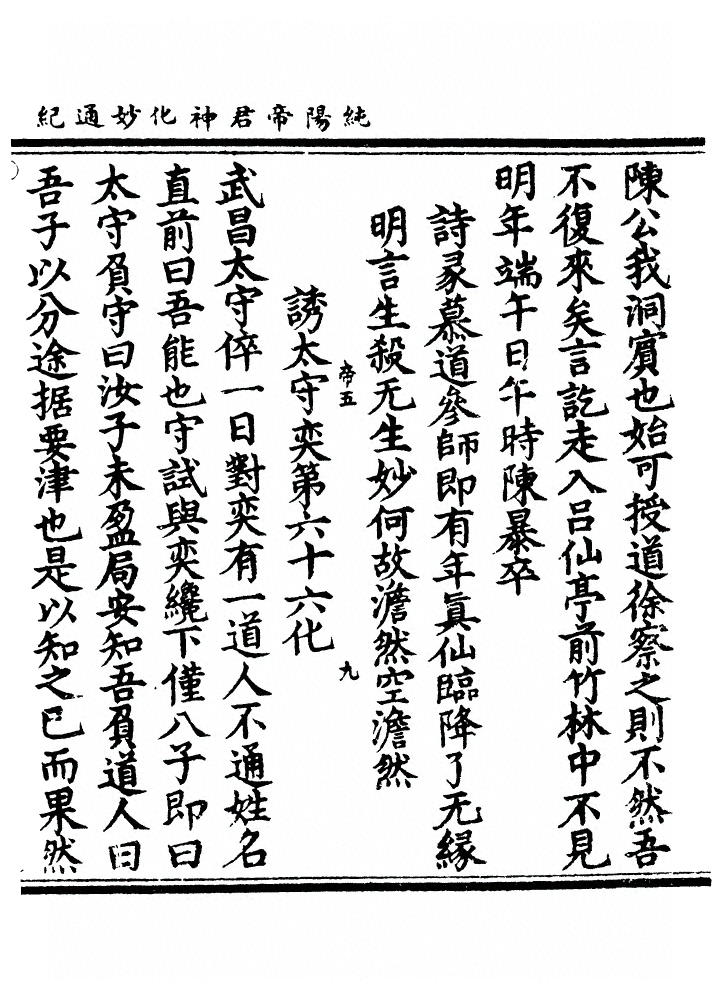 純陽帝君神化妙通紀
陳公我洞賓也始可授道徐察之則不然吾
不復來矣言訖走入吕仙亭前竹林中不見
明年端午日午時陳暴卒
詩彔慕道參師即有年眞仙臨降了无緣
明言生殺无生妙何故澹然空澹然
帝五
九
誘太守奕第六十六化
武昌太守倅一日對奕有一道人不通姓名
直前曰吾能也守試與奕纔下僅八子即曰
太守負守曰汝子未盈局安知吾負道人曰
吾子以分途据要津也是以知之巳而果然